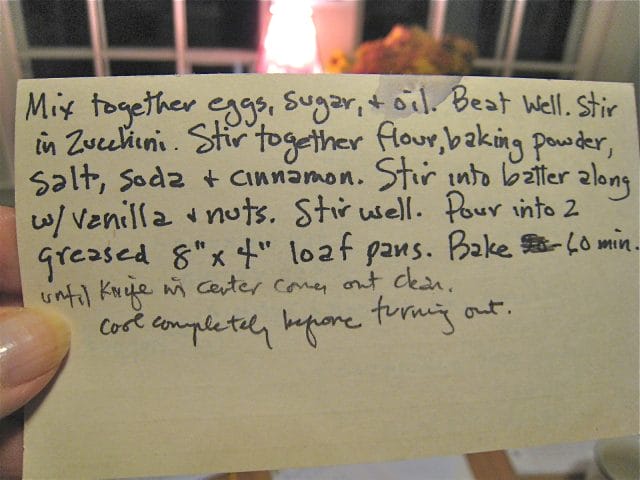 Mix together eggs, sugar, + oil. Beat Well. Stir
in Zucchini. Stir together flour, baking powder,
salt, soda + cinnamon. Stir into batter along
w/ vanilla + nuts. Stir well. Pour into 2
greased 8" x 4" loaf pans. Bake 60 min.
until knife in center comes out clean.
cool completely before turning out.